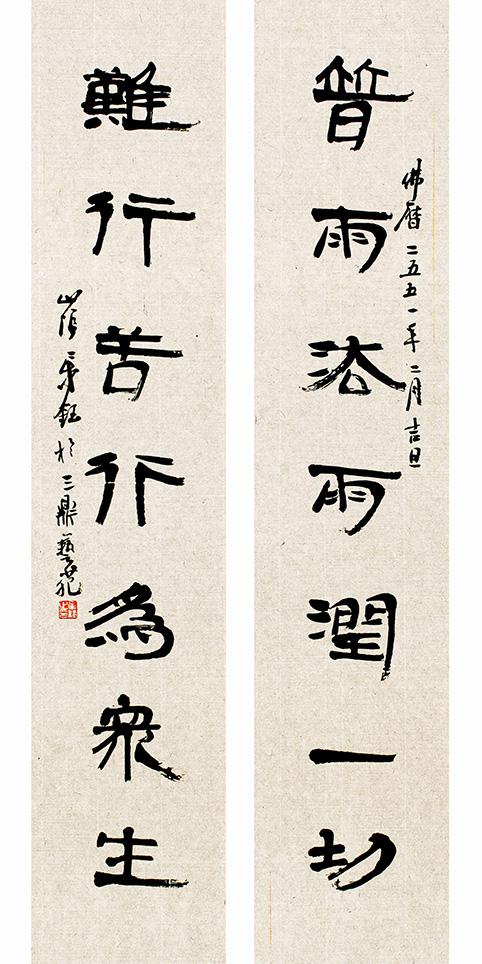 普雨法雨潤一劫
佛曆二五五一年二月吉旦
難行苦行為眾生
鈺於三鼎藝苑